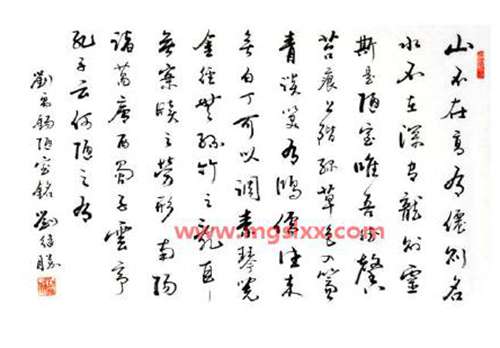 山不在高有僊則名
水不在深有龍則靈
斯是陋室唯吾德馨
苔痕上階綠草色入簾
青談笑有鴻儒往来
無白丁可以調素琴閱
金經無絲竹之亂耳
無案牘之勞形南陽
諸葛廬西蜀子雲亭
孔子云何陋之有
劉禹錫陋室銘 劉
www.mgslxx.com